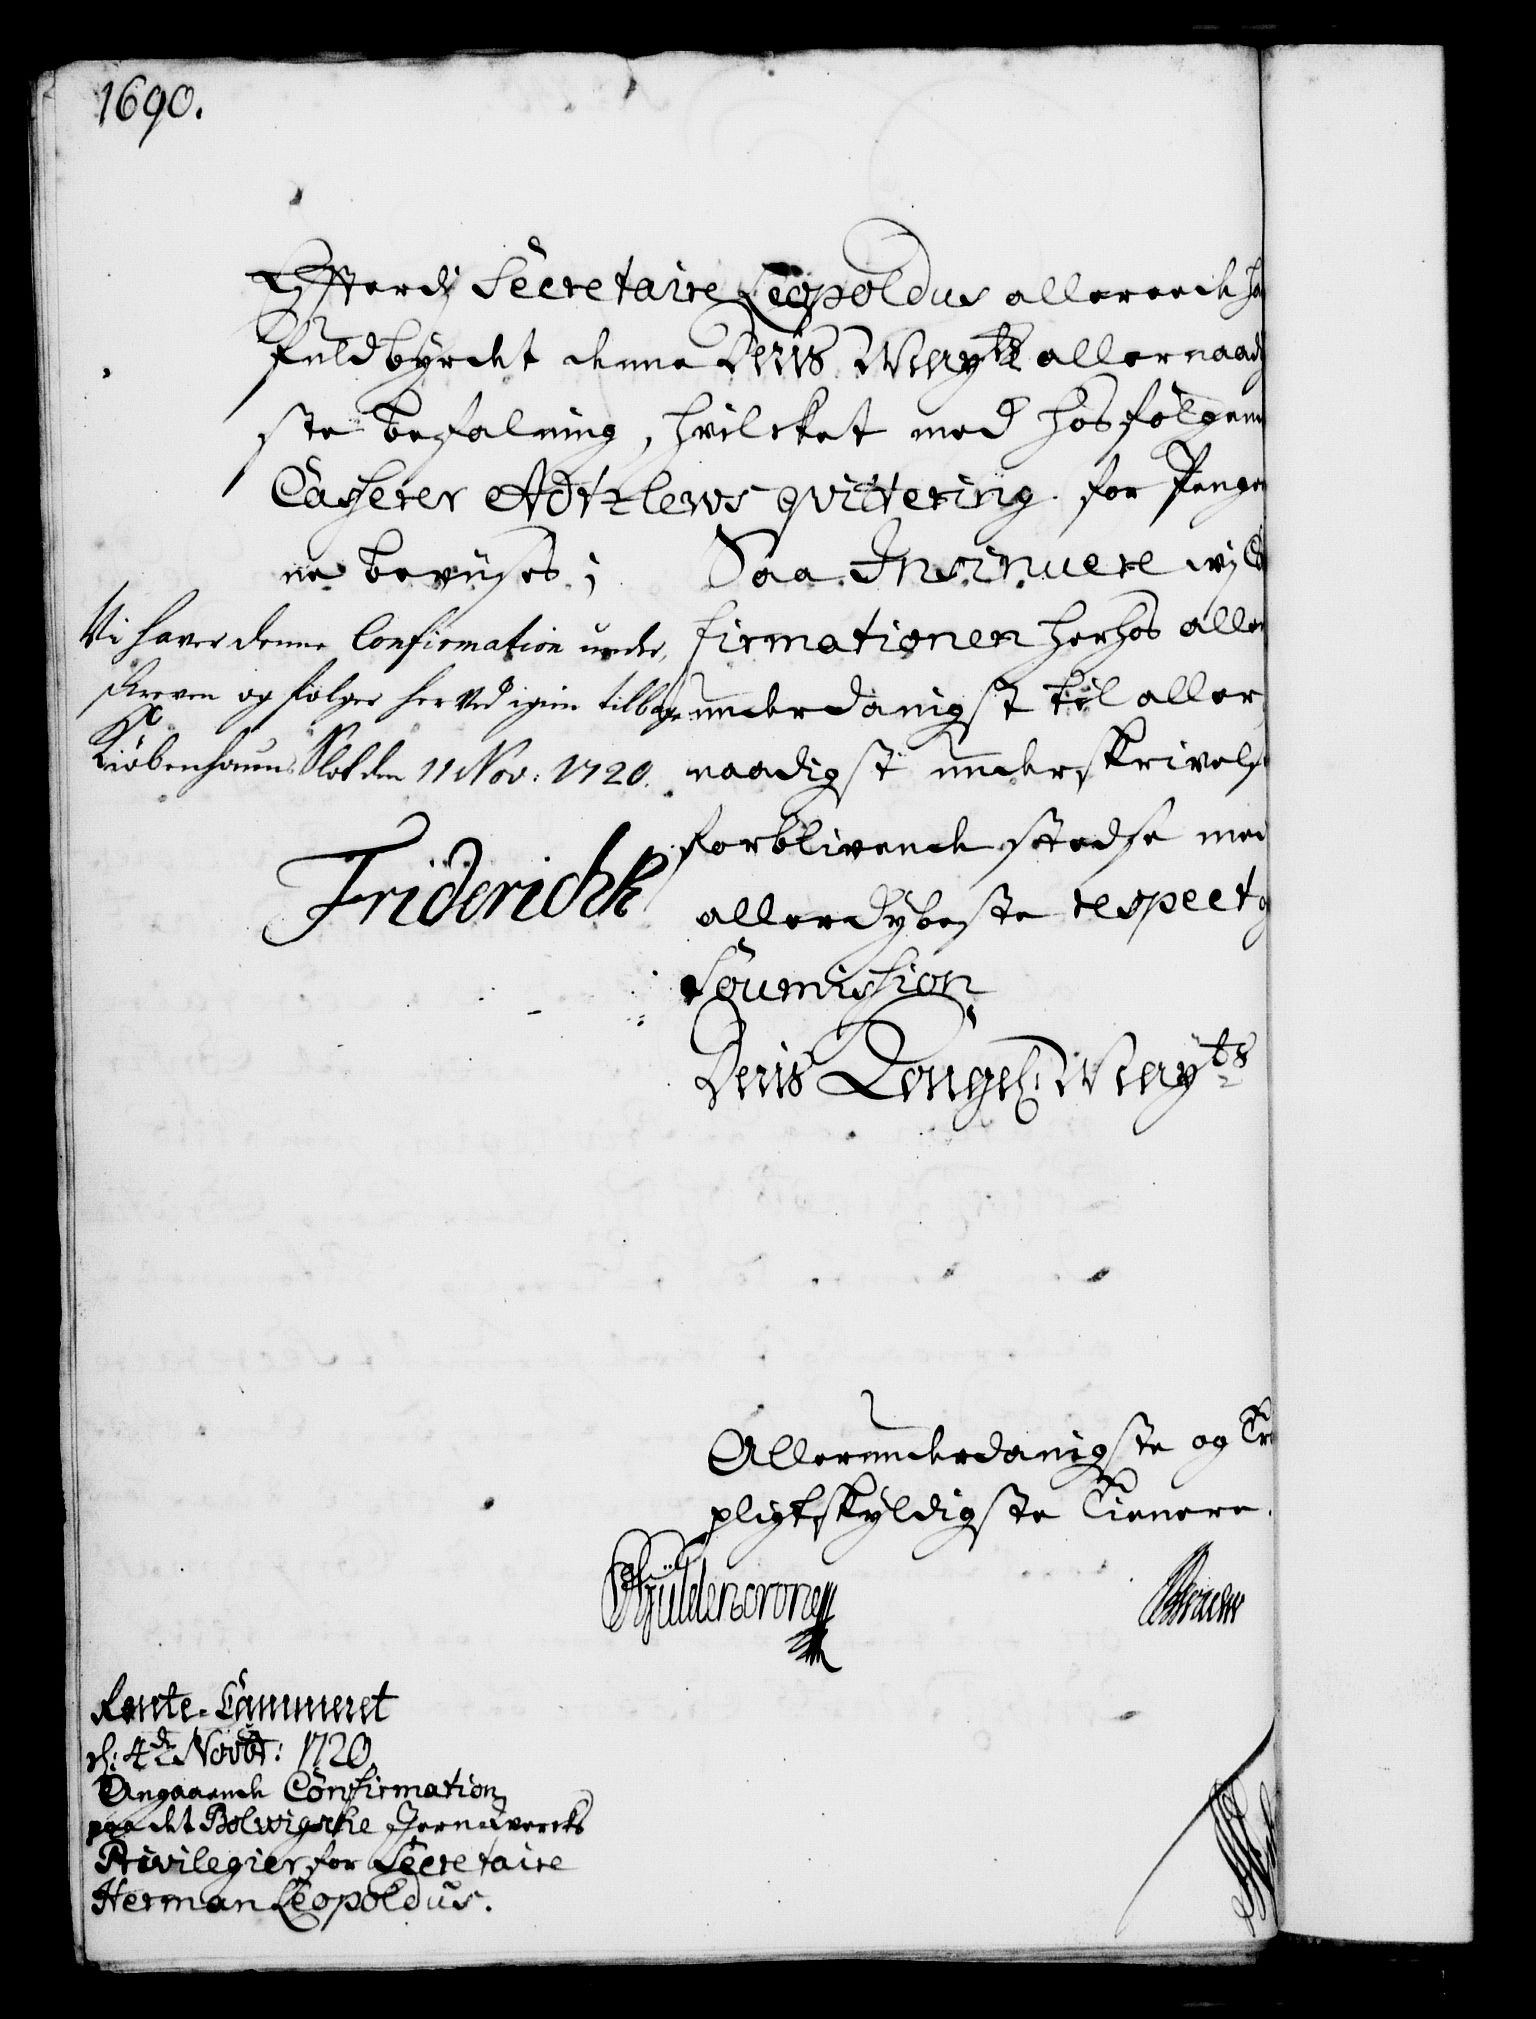 1690.
Efterdj Secretaire Leopoldus allereede ha
fuldbyrdet denne Deris Mayts allernaadig
ste befalning, hvilcket med hosfølgende
Casserer Adtzlews qvittering for Penge
ne bevüses; Saa Insinuere wj Con
firmationen herhos aller
underdanigst til aller
naadigst underskrivelse
forblivende stedse med
allerdybeste respect og
Soumission
Deris Kongel: Mayts
Vi haver denne Confirmation under,
skreven og følger her ved igien tilbage
Kiøbenhauns Slot den 11 Nov: 1720.
Friderich R
Allerunderdanigste og Tro
pligtskyldigste Tienere.
Güldencrone
Rente-Cammeret
d: 4de Novbr: 1720
Angaaende Confirmation
paa det Bolvigske Jernverks
Privilegier for Secretaire
Herman Leopoldus.